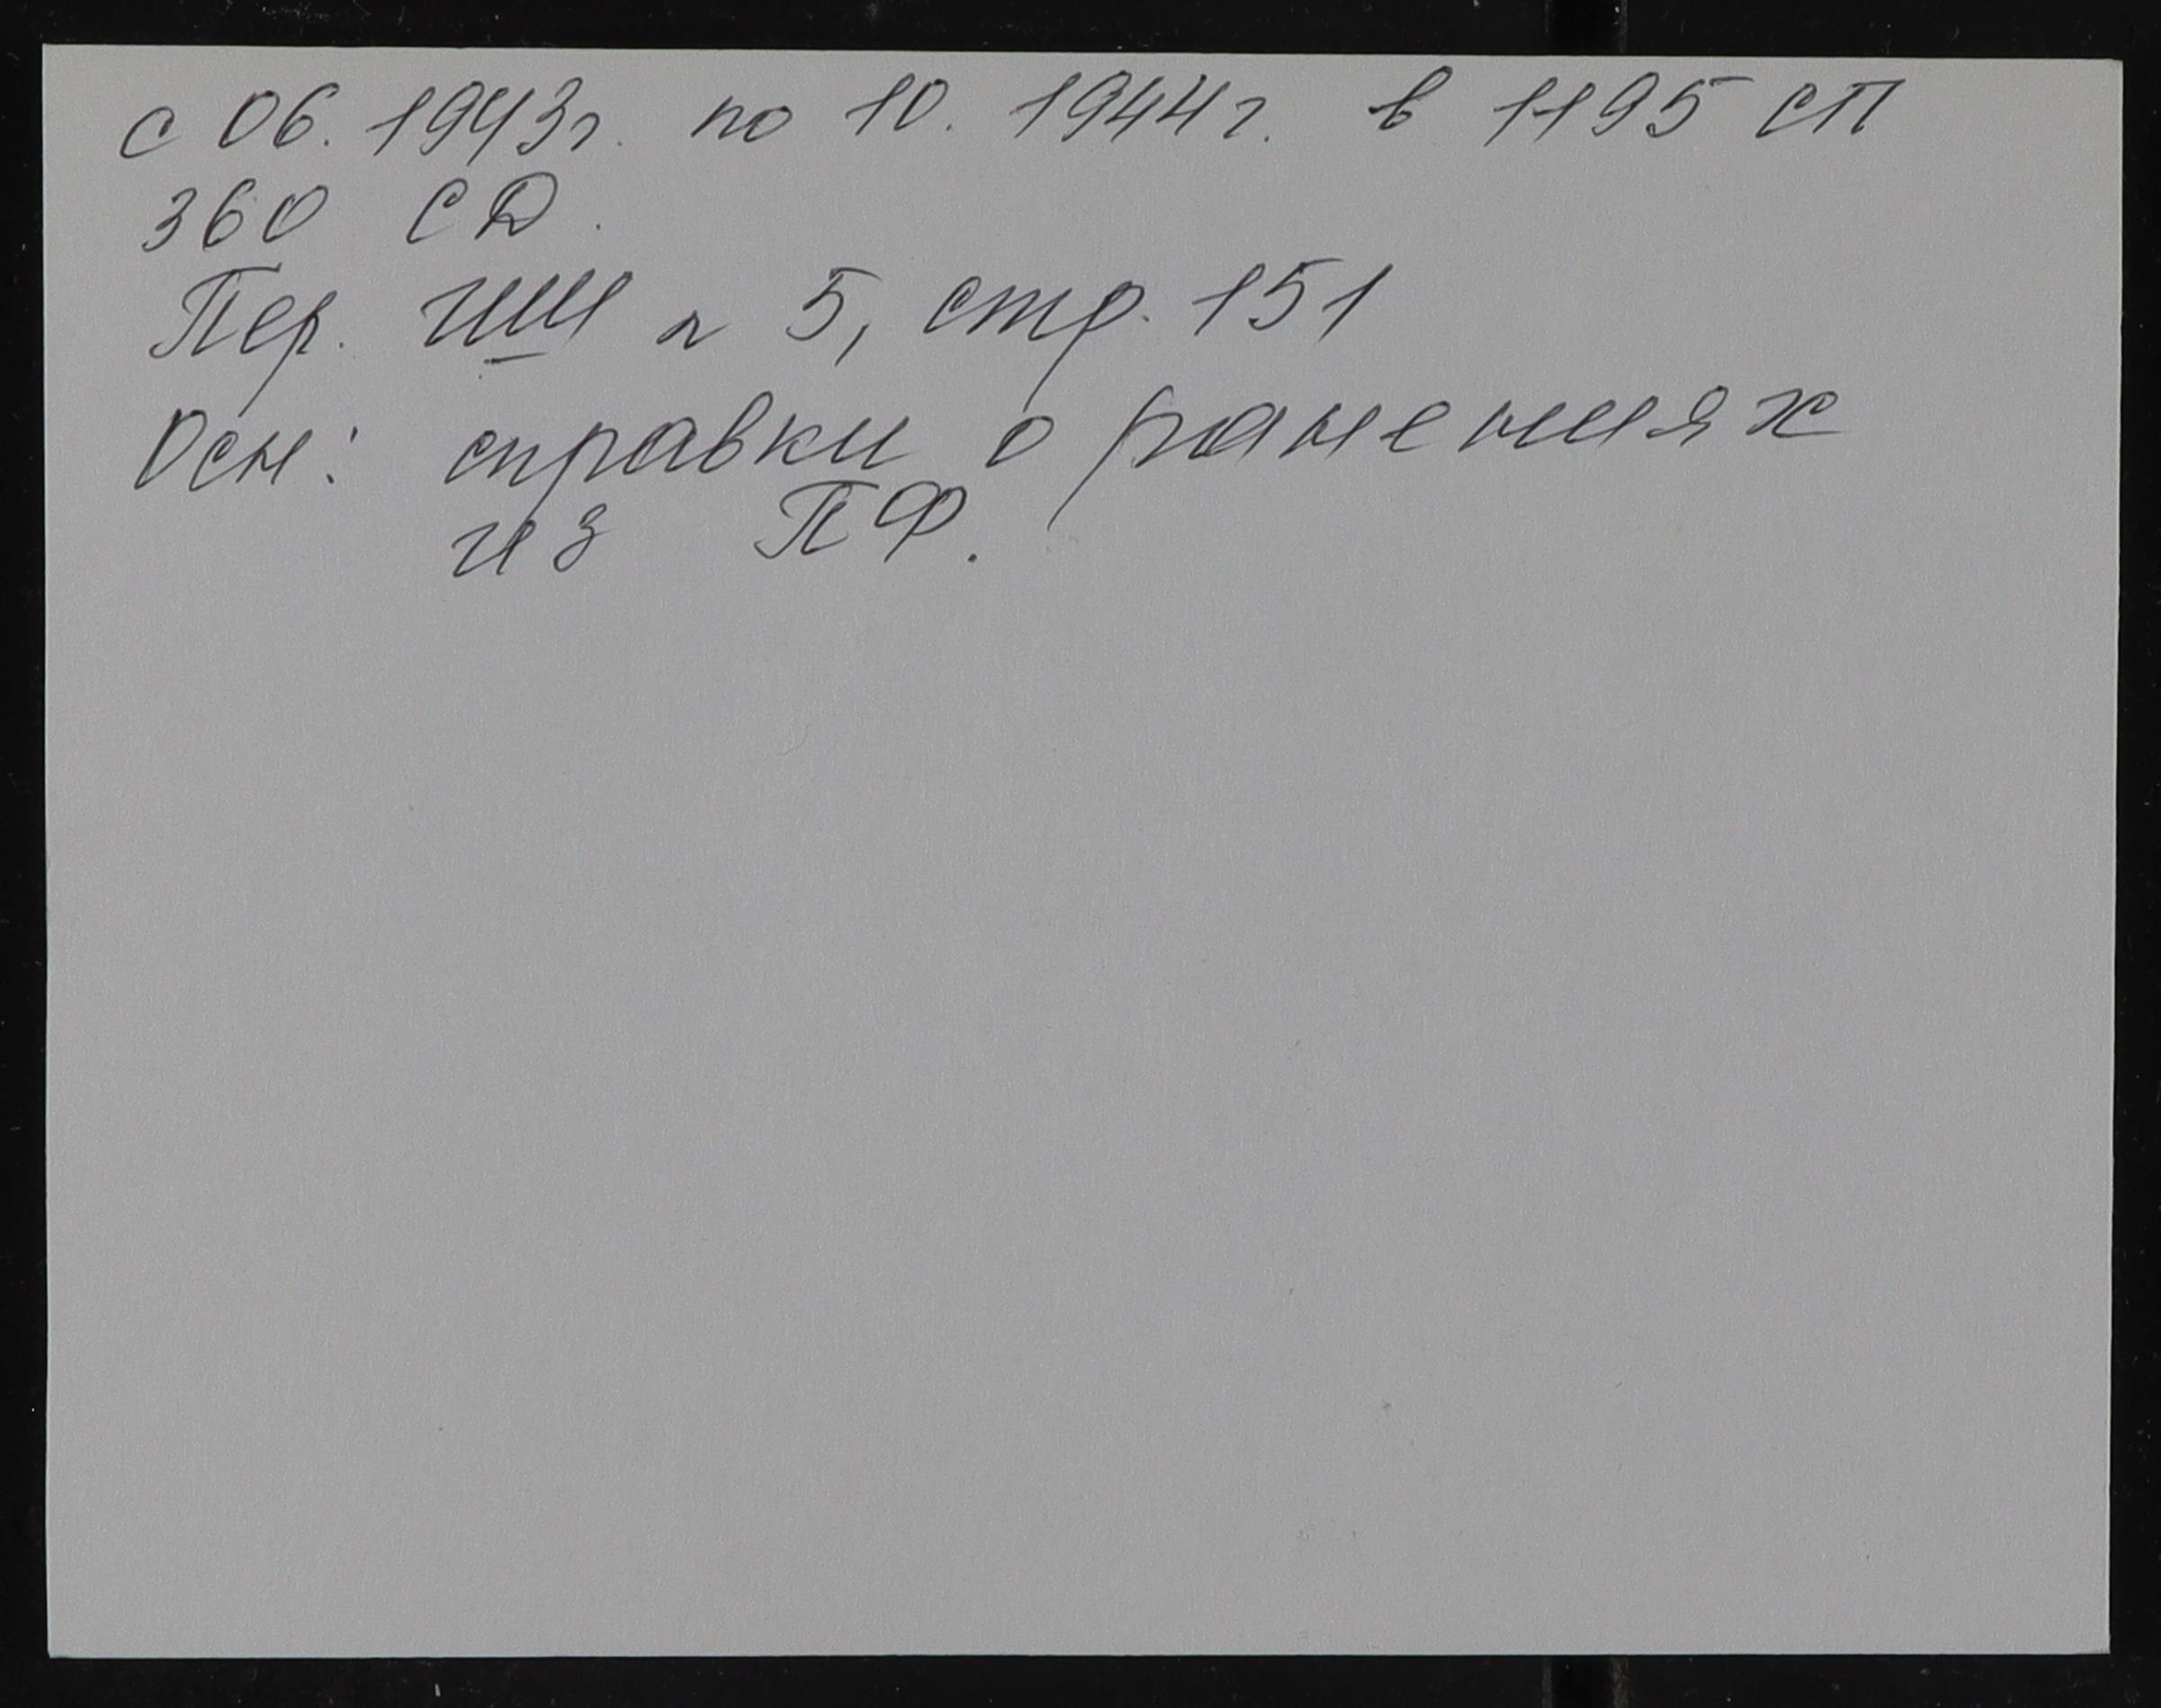 с 06. 1943г. по 10. 1944г. в 1195 СП
360 СД.
Пер. ГШ № 5, стр. 151
Осн: справки о ранениях
из ПФ.